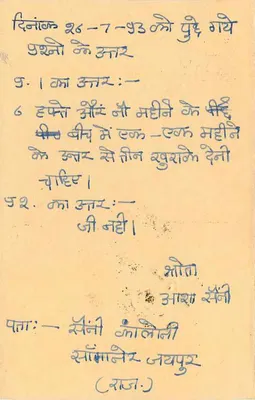 दिनांक 26-7-93 को पुछे गये
प्रश्नो के उत्तर
प्र. 1 का उत्तर :-
6 हफ्ते और नौ महीने के
बीच में एक-एक महीने
के अन्तर से तीन खुराके देनी
चाहिए।
प्र 2. का उत्तर :-
जी नही।
श्रोता
आशा सैनी
पता :- सैनी कालोनी
सांगानेर जयपुर
(राज.)